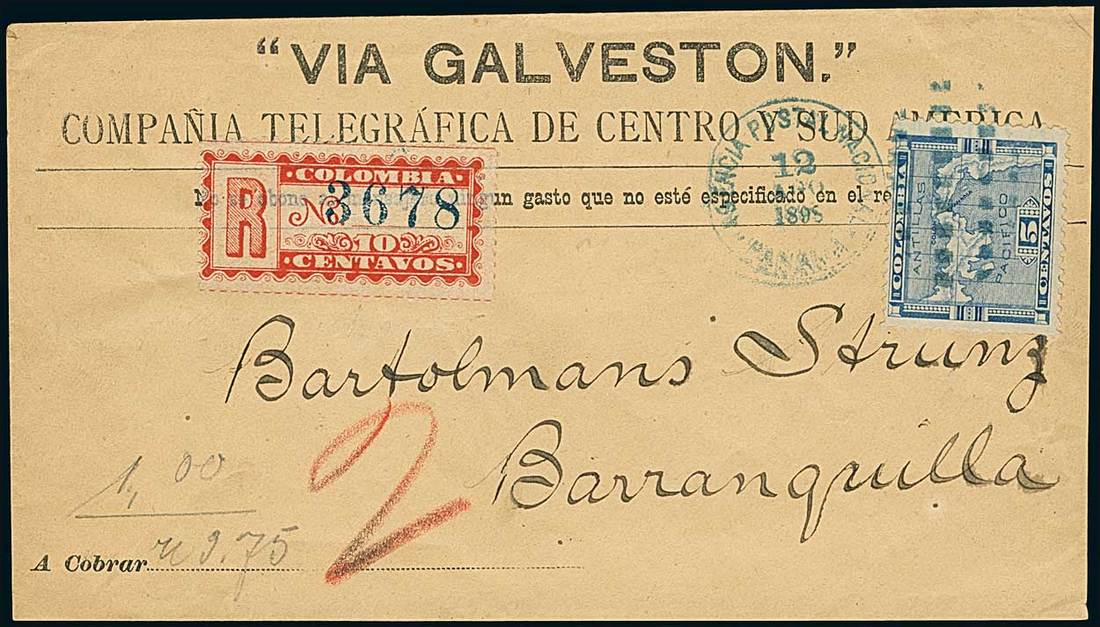 “VIA GALVESTON.”
COMPAÑIA TELEGRÁFICA DE CENTRO Y SUD AMERICA
gun gasto que no esté especificado en el re
COLOMBIA
R No 3678
10
CENTAVOS
AGENCIA POSTAL NACIONAL
12
AGO
189
PANAMA
COLOMBIA
ANTILLAS
PACIFICO
5
5 CENTAVOS
Bartolmans Strunz
Barranquilla
1,00
2
A Cobrar 9.75